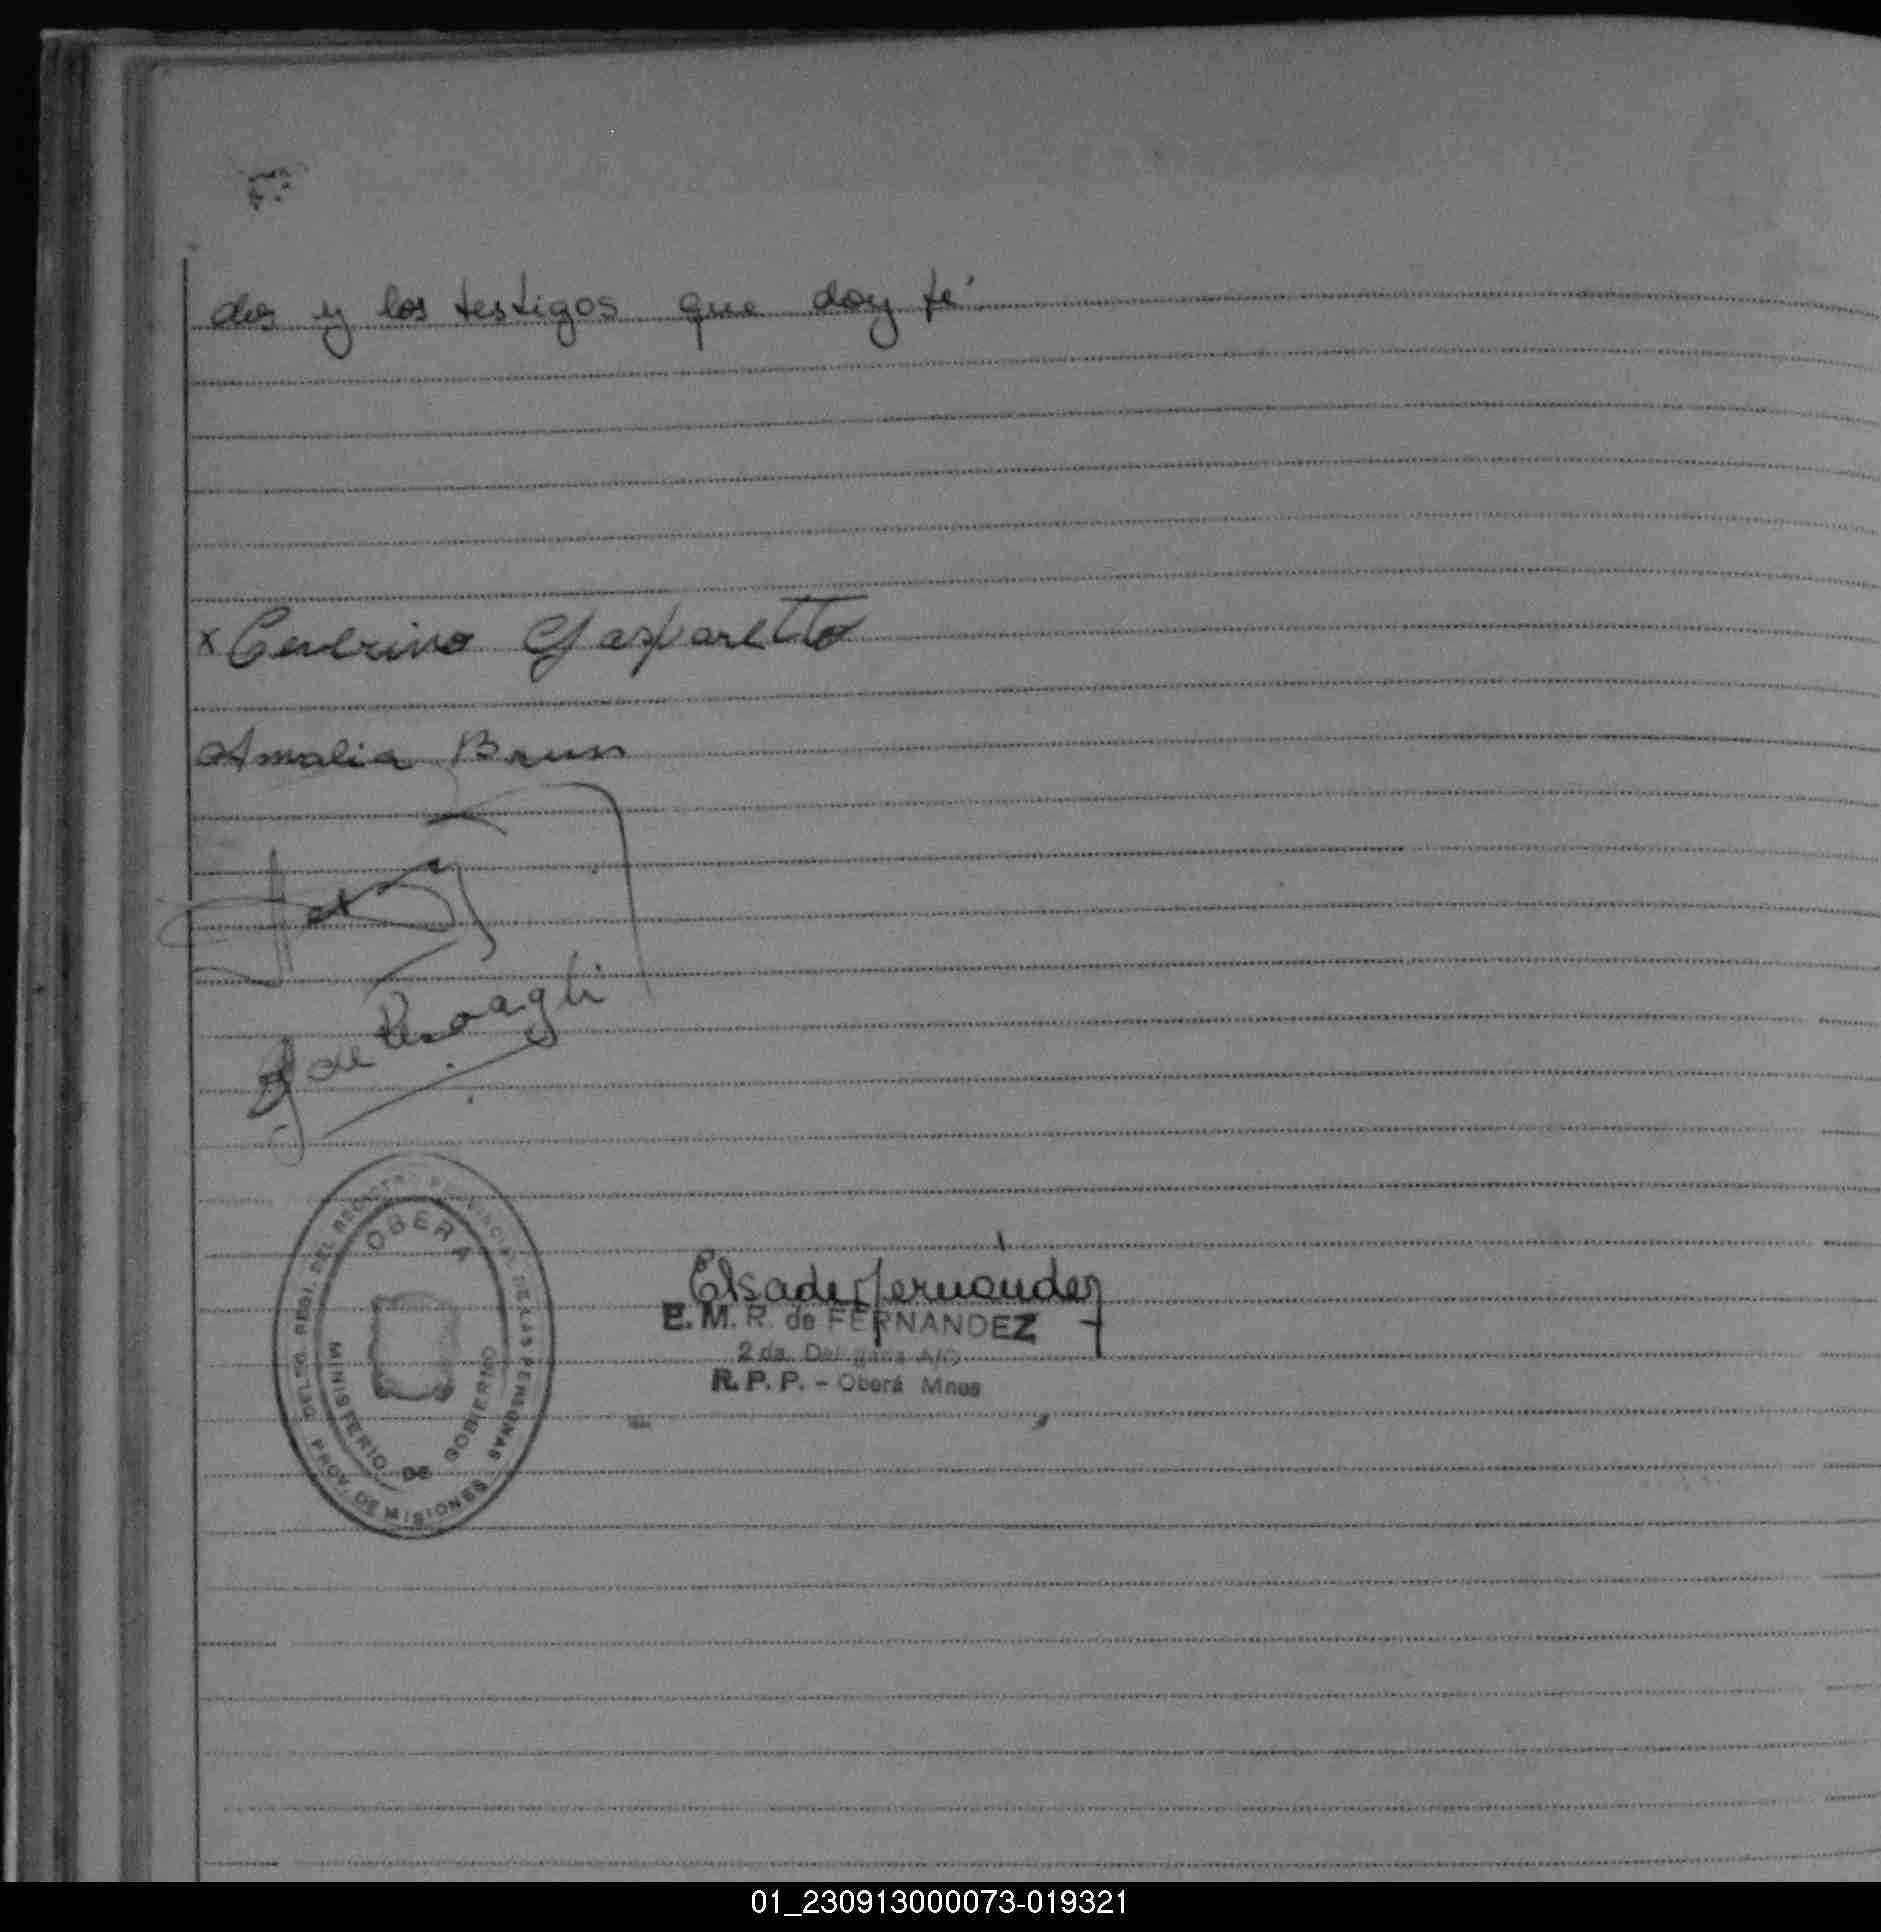 dos y los testigos que doy fe
x Ceverino Gasparetto
Amalia Brun
de
OBERA
MINISTERIO DE GOBIERNO
DELEG. REGI. DEL REGISTRO PROVINCIAL DE LAS PERSONAS
PROV. DE MISIONES
Elsa de Fernández
E. M. R. de FERNANDEZ
2da. Delegada A/C
R. P. P. - Oberá Mnes
01_230913000073-019321